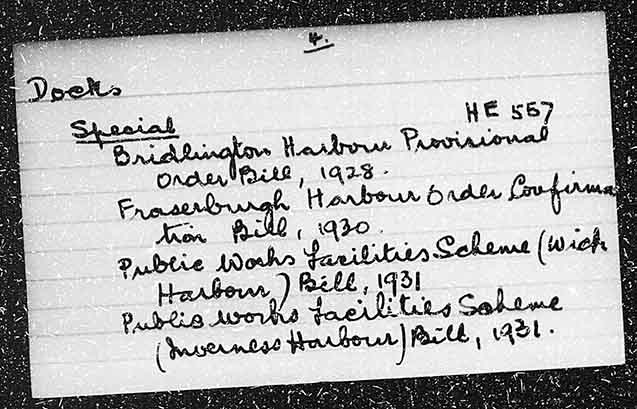 4.
Docks
HE 557
Special
Bridlington Harbour Provisional
Order Bill, 1928.
Fraserburgh Harbour Order Confirma
tion Bill, 1930.
Public Works Facilities Scheme (Wick
Harbour) Bill, 1931
Public Works Facilities Scheme
(Inverness Harbour) Bill, 1931.